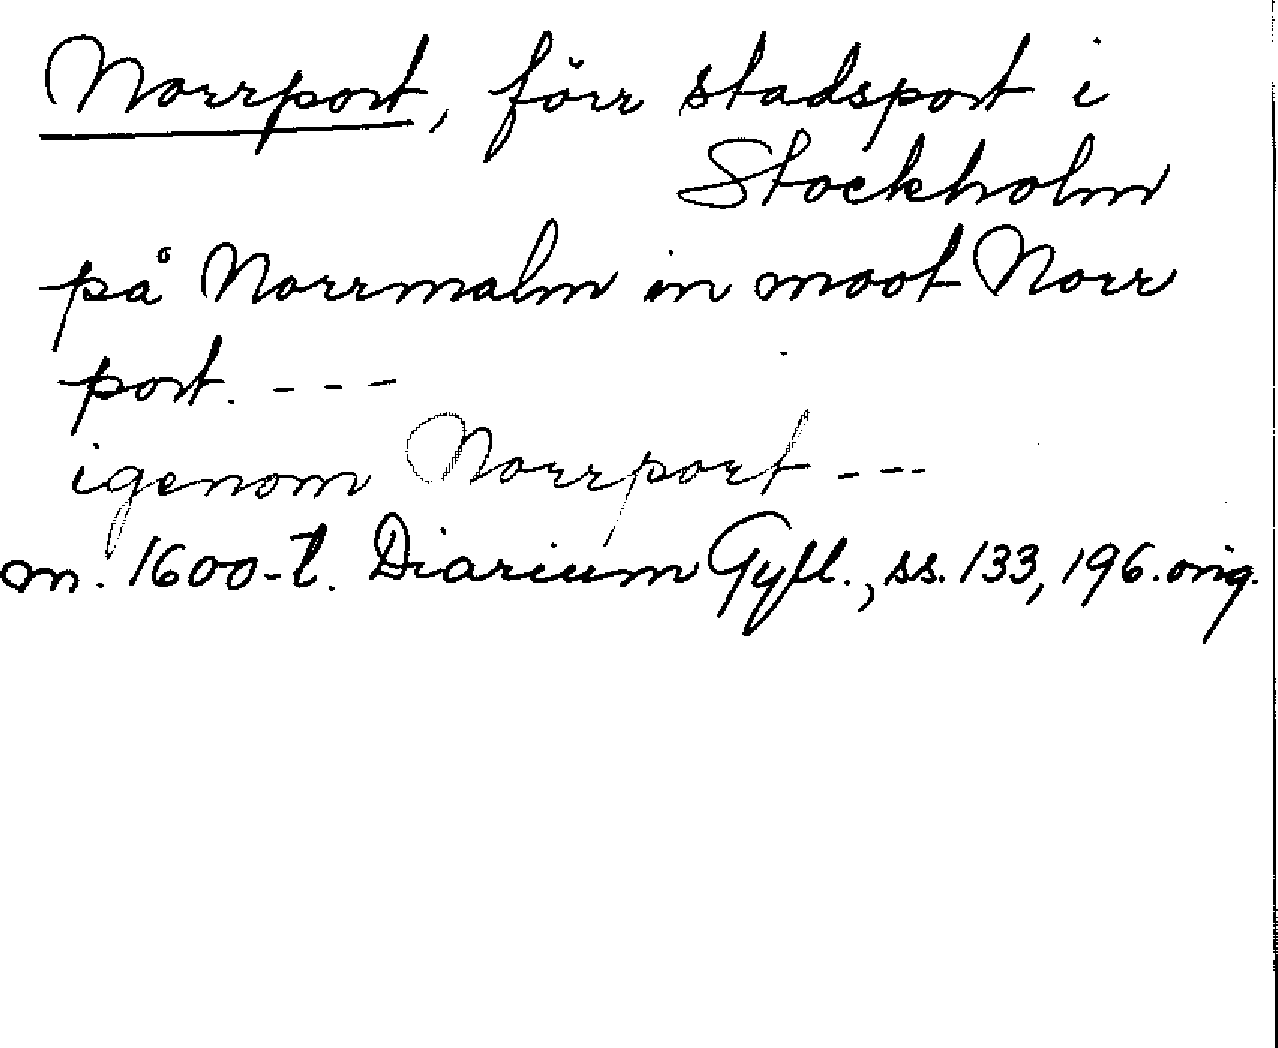 Norrport, förr stadsport i
Stockholm
på Norrmalm in moot Norr
port. - - -
igenom Norrport - - -
m. 1600-t. Diarium Gyll., ss. 133, 196. orig.